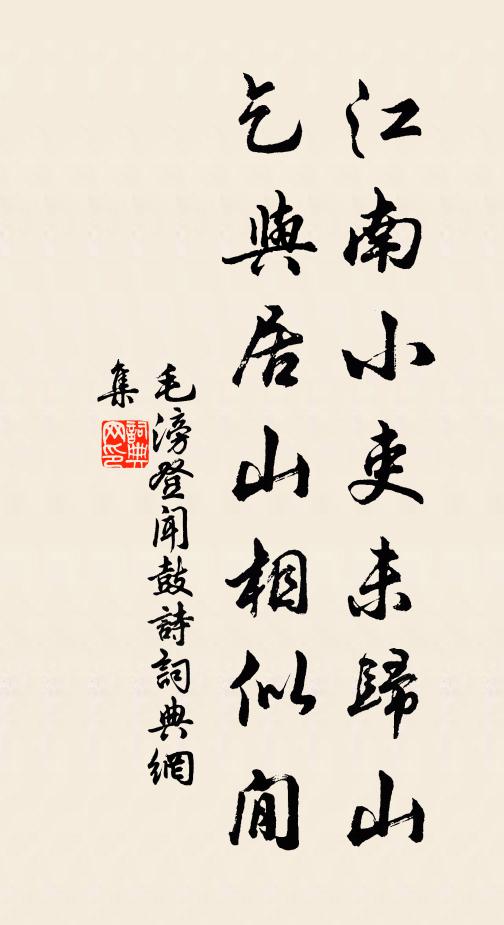 江南小吏未歸山
乞與居山相似閒
毛滂登聞鼓詩詞典網
集
詞典
网印